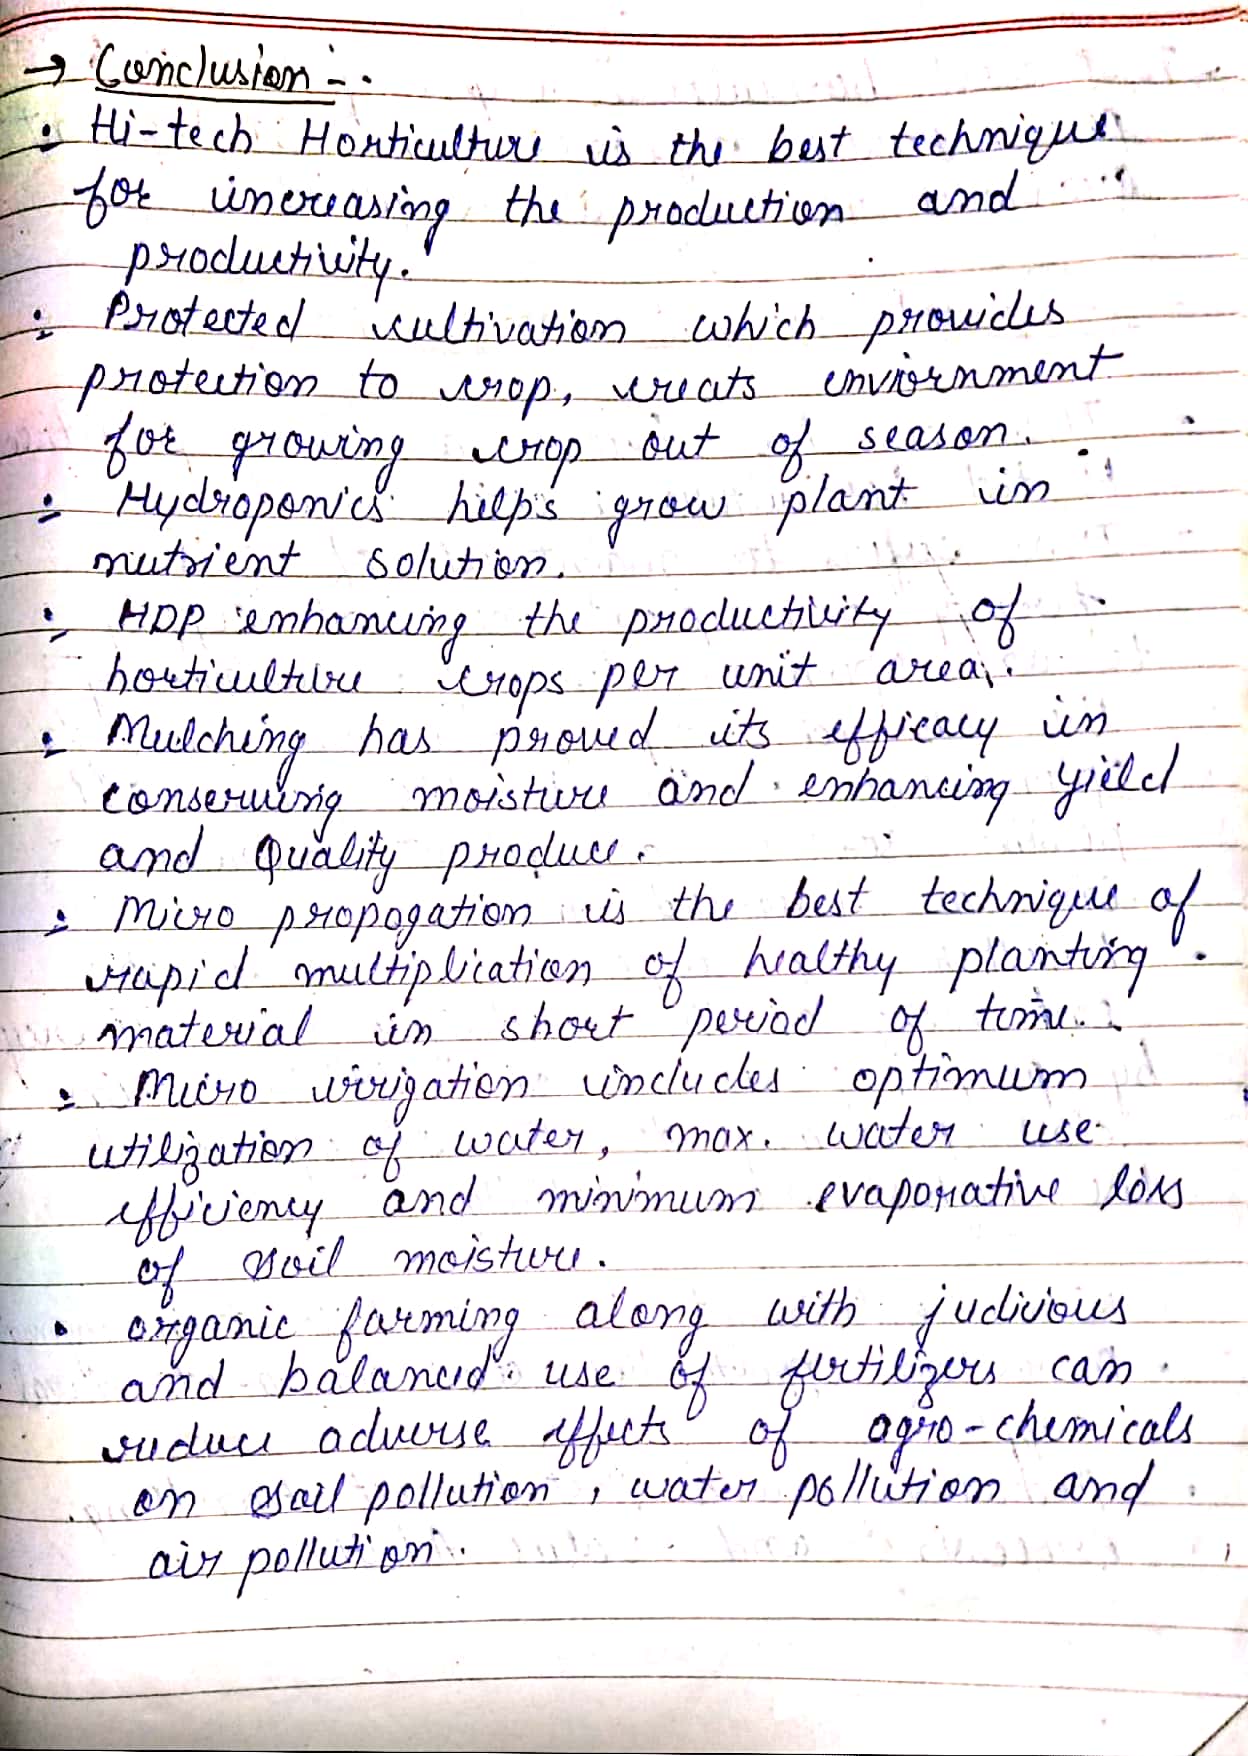 → Conclusion :-
• Hi-tech Horticulture is the best technique
for increasing the production and
productivity.
• Protected cultivation which provides
protection to crop, creats enviornment
for growing crop out of season.
• Hydroponics helps grow plant in
nutrient solution.
• HDP enhancing the productivity of
horticulture crops per unit area.
• Mulching has proved its efficacy in
conserving moisture and enhancing yield
and Quality produce.
• Micro propogation is the best technique of
rapid multiplication of healthy planting
material in short period of time.
• Micro irrigation includes optimum
utilization of water, max. water use
efficiency and minimum evaporative loss
of soil moisture.
• organic farming along with judicious
and balanced use of fertilizers can
reduce adverse effects of agro-chemicals
on soil pollution, water pollution and
air pollution.